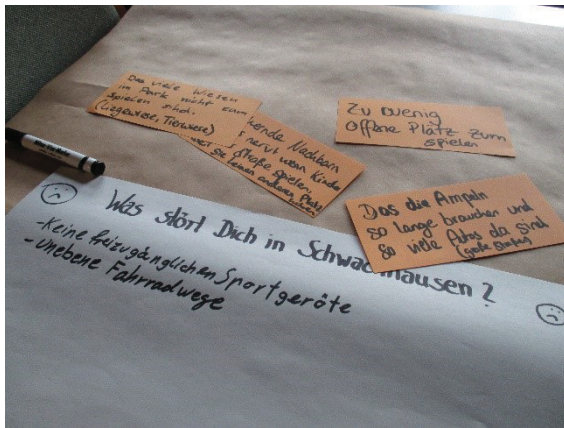 Das viele Wiesen
im Park nicht zum
spielen sind.
(Liegewiese, Tierwiese)
Nachbarn
nervt wenn Kinder
straße spielen,
sie keinen anderen Platz
Zu wenig
Offene Platz zum
spielen
Das die Ampeln
so lange brauchen und
so viele Autos da sind
(große Straßen)
Was stört Dich in Schwachhausen?
-Keine freizugänglichen Sportgeräte
-Unebene Fahrradwege